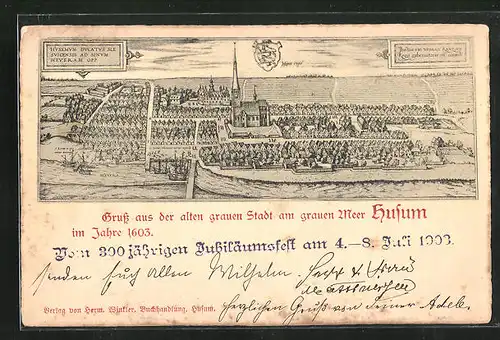 HVSEMVM DVCATVS SLE
SVICENSIS AD SINVM
HEVERAM OPP.
Gruß aus der alten grauen Stadt am grauen Meer Husum
im Jahre 1603.
Vom 300 jährigen Jubiläumsfest am 4.-8. Juli 1903.
senden Euch allen Wilhelm. Frau
herzlichen Gruß von Deiner Adele.
Verlag von Herm. Winkler. Buchhandlung. Husum.